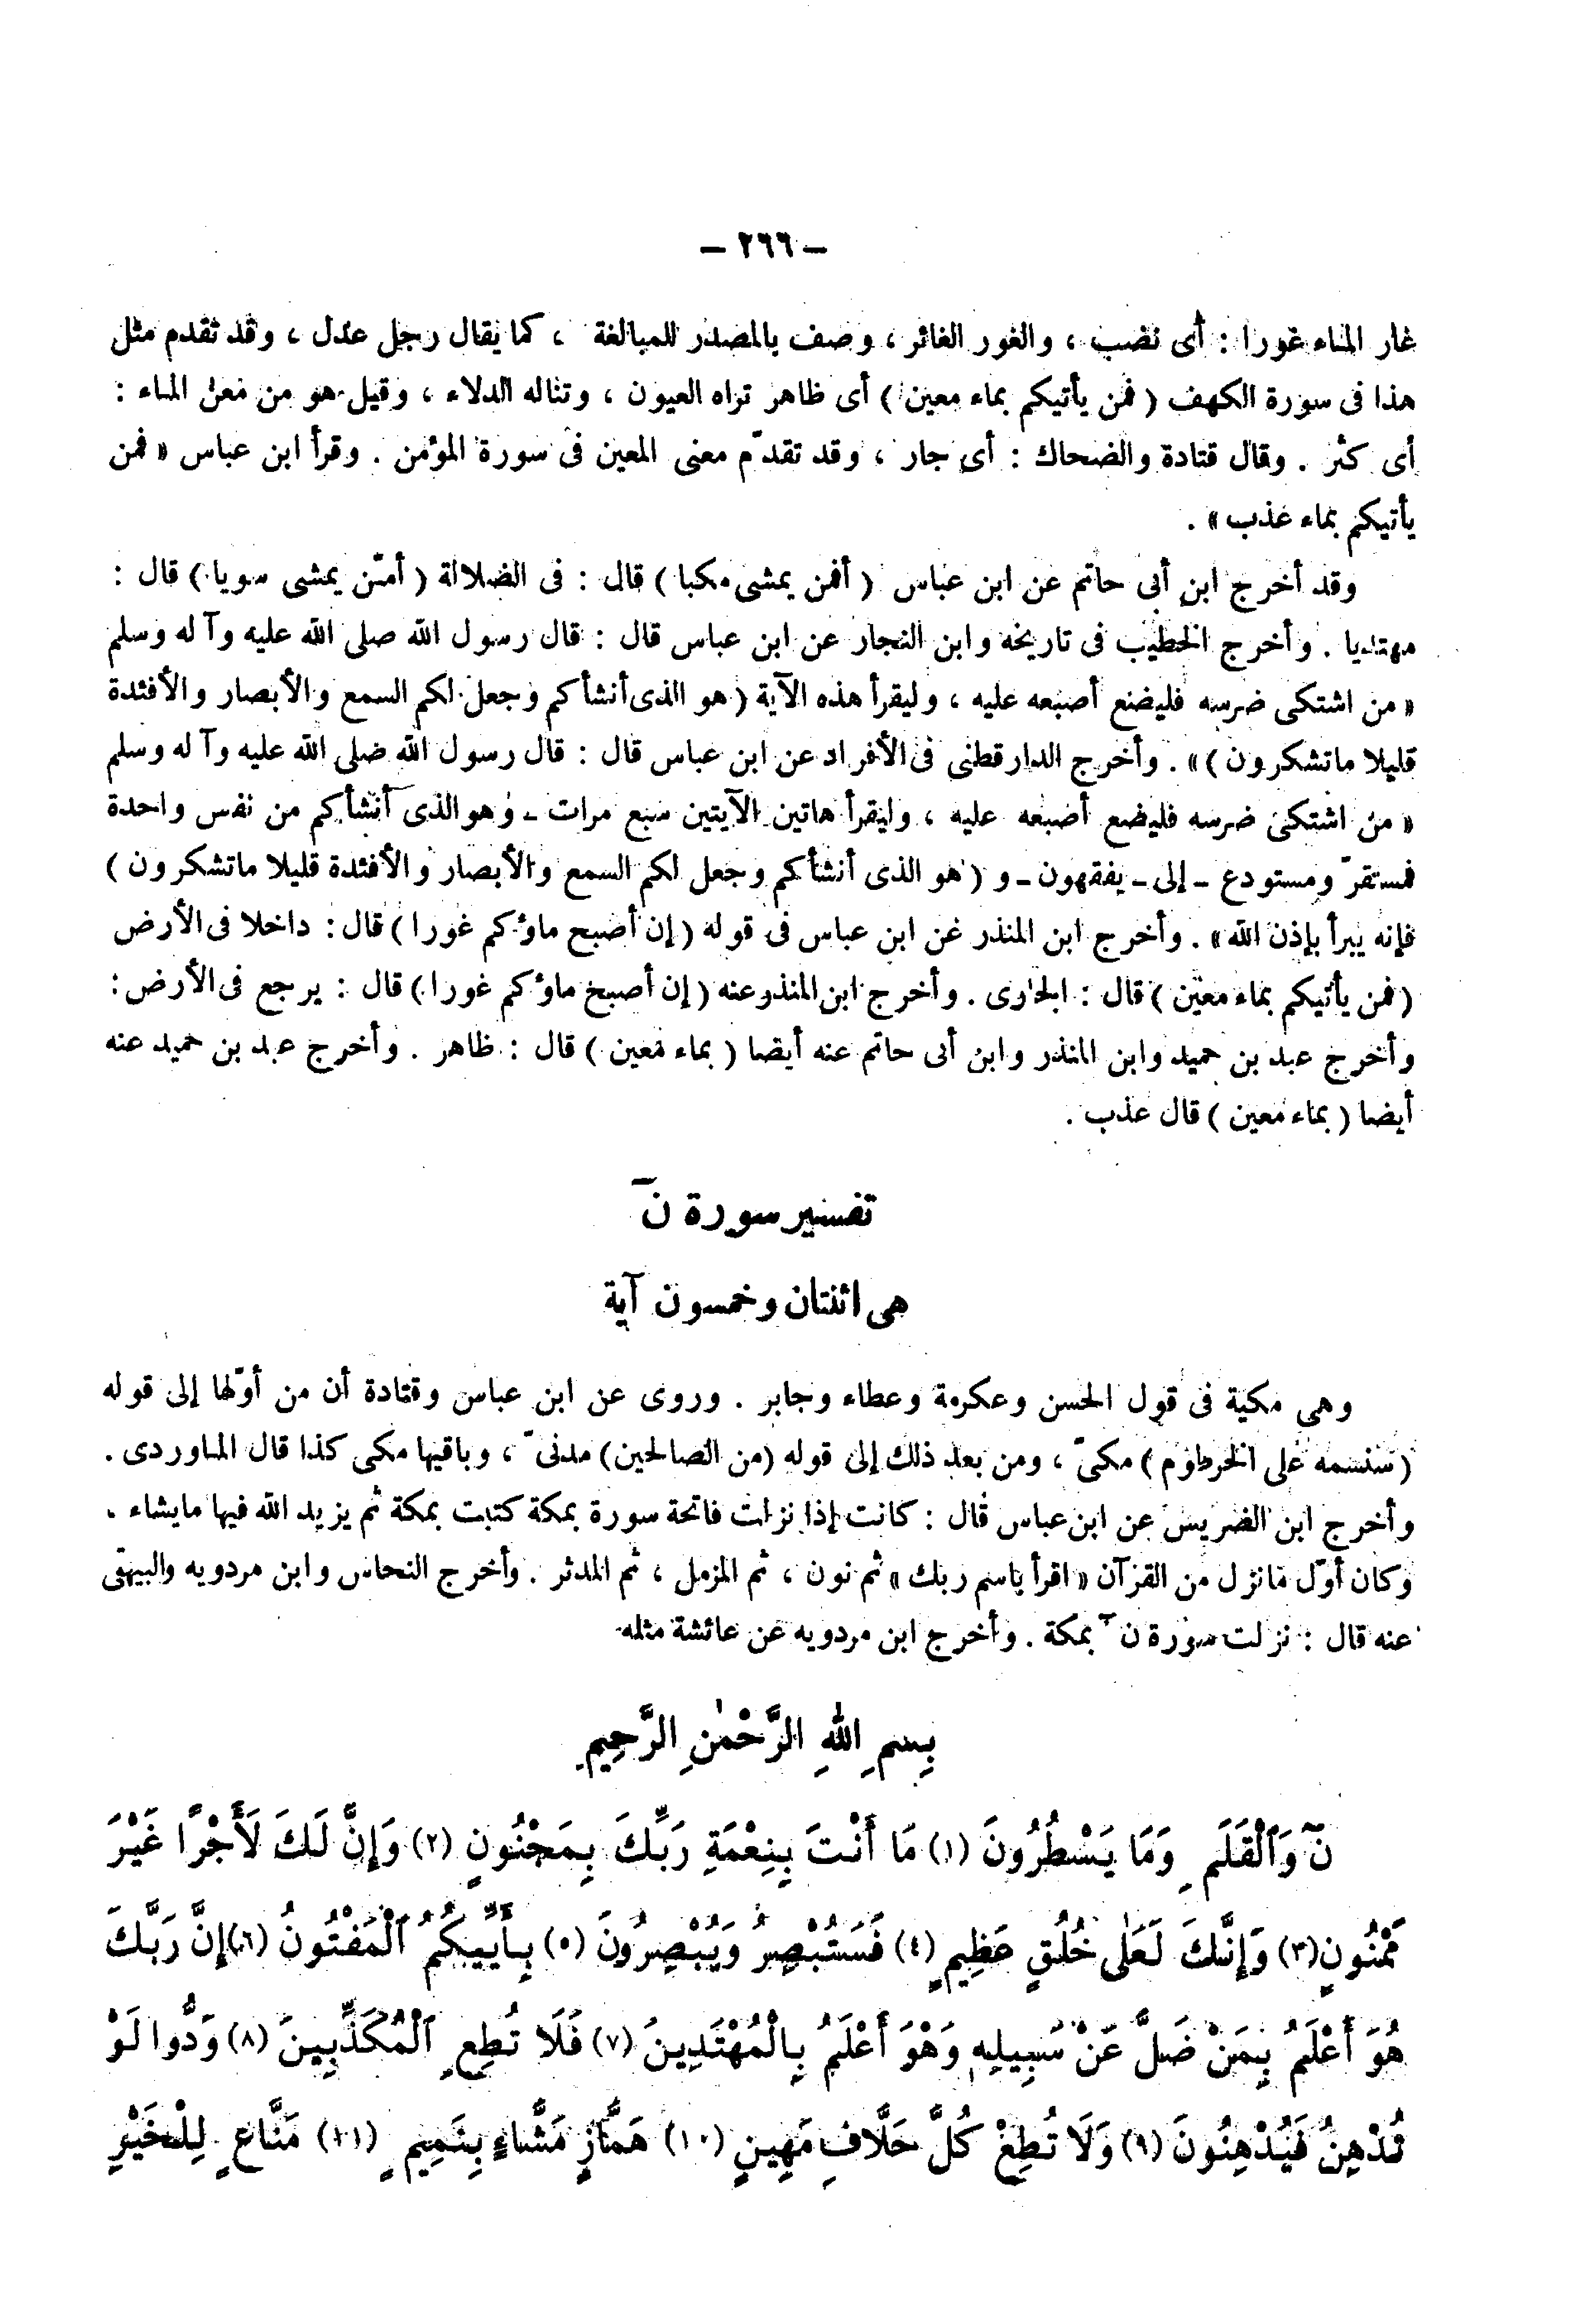 – ٢٦٦ –
غار الماء غورا : أى نضب ، والغور الغائر ، وصف بالمصدر للمبالغة ، كما يقال رجل عدل ، وقد تقدم مثل
هذا فى سورة الكهف ( فمن يأتيكم بماء معين ) أى ظاهر تراه العيون ، وتناله الدلاء ، وقيل هو من معن الماء :
أى كثر . وقال قتادة والضحاك : أى جار ، وقد تقدّم معنى المعين فى سورة المؤمن . وقرأ ابن عباس « فمن
يأتيكم بماء عذب » .
وقد أخرج ابن أبى حاتم عن ابن عباس ( أفمن يمشى مكبا ) قال : فى الضلالة ( أمّن يمشى سويا ) قال :
مهتديا . وأخرج الخطيب فى تاريخه وابن النجار عن ابن عباس قال : قال رسول الله صلى الله عليه وآله وسلم
« من اشتكى ضرسه فليضع أصبعه عليه ، وليقرأ هذه الآية ( هو الذى أنشأكم وجعل لكم السمع والأبصار والأفئدة
قليلا ماتشكرون ) » . وأخرج الدارقطنى فى الأفراد عن ابن عباس قال : قال رسول الله صلى الله عليه وآله وسلم
« من اشتكى ضرسه فليضع أصبعه عليه ، وليقرأ هاتين الآيتين سبع مرات - وهو الذى أنشأكم من نفس واحدة
فمستقرّ ومستودع - إلى - يفقهون - و ( هو الذى أنشأكم وجعل لكم السمع والأبصار والأفئدة قليلا ماتشكرون )
فإنه يبرأ بإذن الله » . وأخرج ابن المنذر عن ابن عباس فى قوله ( إن أصبح ماؤكم غورا ) قال : داخلا فى الأرض
( فمن يأتيكم بماء معين ) قال : الجارى . وأخرج ابن المنذر عنه ( إن أصبح ماؤكم غورا ) قال : يرجع فى الأرض :
وأخرج عبد بن حميد وابن المنذر وابن أبى حاتم عنه أيضا ( بماء معين ) قال : ظاهر . وأخرج عبد بن حميد عنه
أيضا ( بماء معين ) قال عذب .
تفسير سورة نٓ
هى اثنتان وخمسون آية
وهى مكية فى قول الحسن وعكرمة وعطاء وجابر . وروى عن ابن عباس وقتادة أن من أوّلها إلى قوله
( سنسمه على الخرطوم ) مكىّ ، ومن بعد ذلك إلى قوله (من الصالحين) مدنىّ ، وباقيها مكى كذا قال الماوردى .
وأخرج ابن الضريس عن ابن عباس قال : كانت إذا نزلت فاتحة سورة بمكة كتبت بمكة ثم يزيد الله فيها مايشاء ،
وكان أوّل مانزل من القرآن « اقرأ باسم ربك » ثم نون ، ثم المزمل ، ثم المدثر . وأخرج النحاس وابن مردويه والبيهقى
عنه قال : نزلت سورة نٓ بمكة . وأخرج ابن مردويه عن عائشة مثله
بِسمِ اللهِ الرَّحْمٰنِ الرَّحِيمِ
نٓ وَٱلْقَلَمِ وَمَا يَسْطُرُونَ (١) مَا أَنْتَ بِنِعْمَةِ رَبِّكَ بِمَجْنُونٍ (٢) وَإِنَّ لَكَ لَأَجْرًا غَيْرَ
مَمْنُونٍ (٣) وَإِنَّكَ لَعَلَىٰ خُلُقٍ عَظِيمٍ (٤) فَسَتُبْصِرُ وَيُبْصِرُونَ (٥) بِأَييِّكُمُ ٱلْمَفْتُونُ (٦) إِنَّ رَبَّكَ
هُوَ أَعْلَمُ بِمَنْ ضَلَّ عَنْ سَبِيلِهِ وَهْوَ أَعْلَمُ بِالْمُهْتَدِينَ (٧) فَلَا تُطِعِ ٱلْمُكَذِّبِينَ (٨) وَدُّوا لَوْ
تُدْهِنُ فَيُدْهِنُونَ (٩) وَلَا تُطِعْ كُلَّ حَلَّافٍ مَهِينٍ (١٠) هَمَّازٍ مَشَّاءٍ بِنَمِيمٍ (١١) مَنَّاعٍ لِلْخَيْرِ